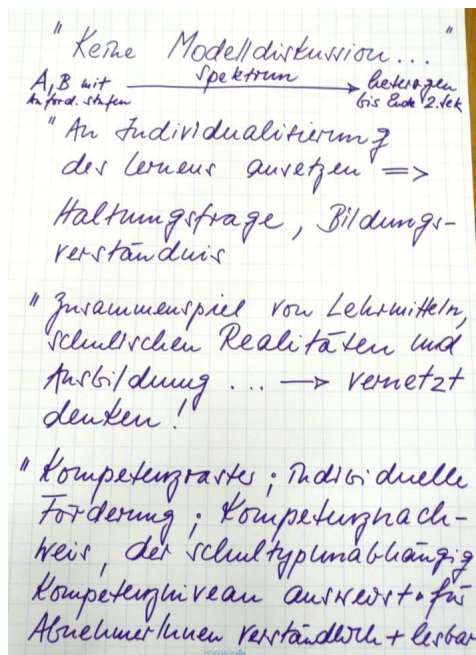 " Keine Modelldiskussion... "
A, B mit Anford.stufen ⟶ Spektrum ⟶ heterogen bis Ende 2. Sek
" An Individualisierung
des Lernens ansetzen =>
Haltungsfrage, Bildungs-
verständnis
" Zusammenspiel von Lehrmitteln,
schulischen Realitäten und
Ausbildung ... → vernetzt
denken!
" Kompetenzraster; individuelle
Förderung; Kompetenznach-
weis, der schultypunabhängig
Kompetenzniveau ausweist + für
AbnehmerInnen verständlich + lesbar